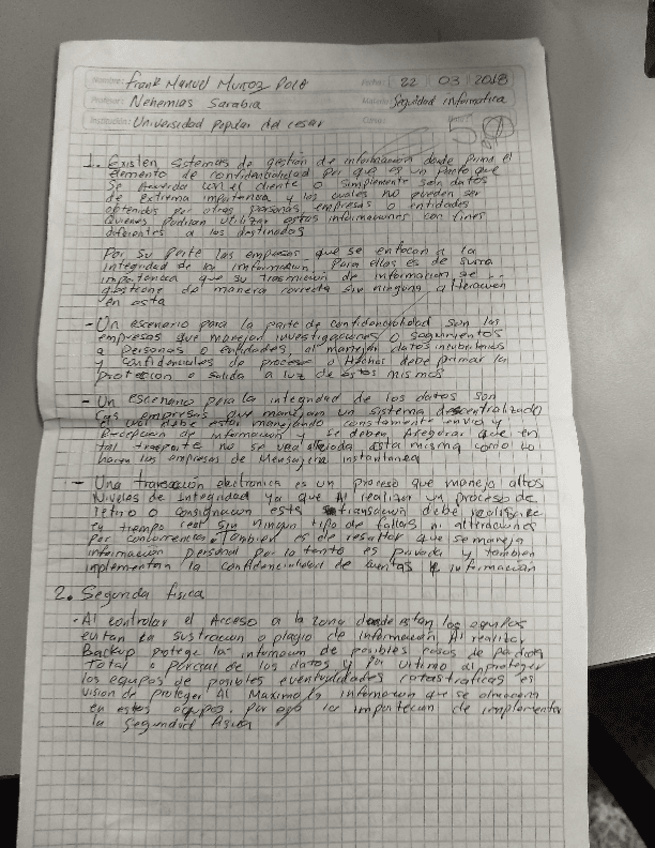 Nombre: Frank Manuel Muñoz Polo Fecha: 22 03 2018
Profesor: Nehemias Sarabia Materia: Seguidad informatica
Institución: Universidad Popular del cesar Curso: 50
1. Existen sistemas de gestión de informacion donde prima el
elemento de confidencialidad por que es un punto que
se acuerda con el cliente o simplemente son datos
de extrema importancia y los cuales no pueden ser
obtenidos por otras personas, empresas o entidades
quienes podrian utilizar estas informaciones con fines
diferentes a los destinados
Por su parte las empresas que se enfocan a la
integridad de la imformacion. Para ellas es de suma
importancia que su trasmicion de informacion se
gestione de manera correcta sin ninguna alteracion
en esta
- Un escenario para la parte de confidencialidad son las
empresas que manejan investigaciones o seguimientos
a personas o entidades, al manejar datos
y confidenciales de procesos o Hechos debe primar la
proteccion o salida a luz de estos mismos
- Un escenario para la integridad de los datos son
las empresas que manejan un sistema descentralizado
el cual debe estar manejando constamente envio y
Recepcion de informacion y se deben Asegurar que en
tal trasporte no se vea afectada esta misma como lo
hacen las empresas de Mensajeria instantanea
- Una transacción electronica es un proceso que maneja altos
Niveles de Integridad ya que Al realizar un proceso de
retiro o consignacion esta transacion debe realizarse
en tiempo real sin ningun tipo de fallas ni alteraciones
por concurrencias. Tambien es de resaltar que se maneja
informacion personal por lo tanto es privada y tambien
implementan la confidencialidad de cuentas e informacion
2. Segunda fisica
- Al controlar el Acceso a la zona donde estan los equipos
evitan la sustracion o plagio de informacion, Al realizar
Backup protege la informacion de posibles casos de perdida
Total o parcial de los datos y por ultimo al proteger
los equipos de posibles eventualidades catastraficas es
vision de proteger Al Maximo la informacion que se almacena
en estos equipos. por eso la importacian de implementar
la Seguridad fisica